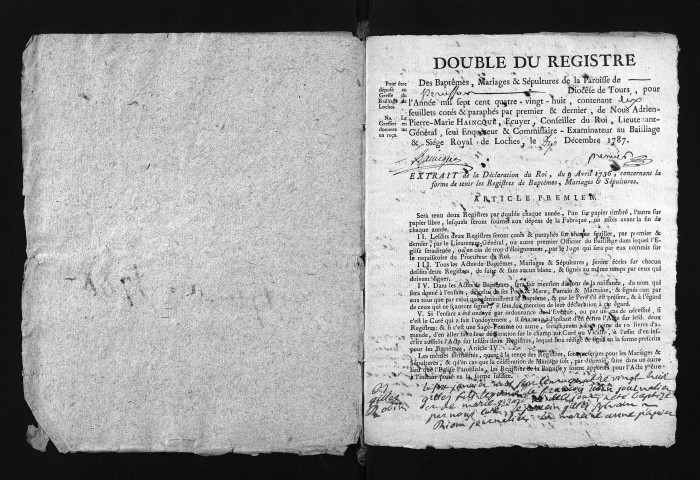 1788
DOUBLE DU REGISTRE
Pour être
déposé au
Greffe du
Bailliage de
Loches.
Na. Le
Greffier en
donnera un
reçu.
Des Baptêmes, Mariages & Sépultures de la Paroisse de
Diocèse de Tours, pour
l'Année mil sept cent quatre-vingt-huit, contenant dix
feuillets cotés & paraphés par premier & dernier, de Nous Adrien-
Pierre-Marie HAINCQUE, Ecuyer, Conseiller du Roi, Lieutenant-
Général, seul Enquêteur & Commissaire-Examinateur au Bailliage
& Siége Royal de Loches, le Décembre 1787.
Haincque premier
EXTRAIT de la Déclaration du Roi, du 9 Avril 1736, concernant la
forme de tenir les Registres de Baptêmes, Mariages & Sépultures.
ARTICLE PREMIER.
Sera tenu deux Registres par double chaque année, l'un sur papier timbré, l'autre sur
papier libre, lesquels seront fournis aux dépens de la Fabrique, un mois avant la fin de
chaque année.
II. Lesdits deux Registres seront cotés & paraphés sur chaque feuillet, par premier &
dernier, par le Lieutenant-Général, ou autre premier Officier du Bailliage dans lequel l'E-
glise sera située, ou en cas de trop d'éloignement, par le Juge qui sera par eux commis sur
le requisitoire du Procureur du Roi.
III. Tous les Actes de Baptêmes, Mariages & Sépultures, seront écrits sur chacun
desdits deux Registres, de suite & sans aucun blanc, & signés au même temps par ceux qui
doivent signer.
IV. Dans les Actes de Baptêmes, sera fait mention du jour de la naissance, du nom qui
sera donné à l'enfant, de celui de ses Pere & Mere, Parrain & Marraine, & signés tant par
eux tous que par celui qui administrera le Baptême, & par le Pere s'il est présent, & à l'égard
de ceux qui ne sçauront signer, il sera fait mention de leur déclaration à cet égard.
V. Si l'enfant a été ondoyé par ordonnance de l'Evêque, ou par un cas de nécessité, si
c'est le Curé qui a fait l'ondoyement, il sera tenu à l'instant d'en écrire l'Acte sur lesd. deux
Registres; & si c'est une Sage-Femme ou autre, seront tenus sous peine de 10 livres d'a-
mende, d'en aller faire leur déclaration sur le champ au Curé ou Vicaire, à l'effet d'en ins-
crire aussitôt l'Acte sur lesdits deux Registres, lequel sera rédigé & signé en la forme prescrite
pour les Baptêmes, Article IV.
Les mêmes formalités, quant à la tenue des Registres, sont prescrites pour les Mariages &
Sépultures, & qu'en cas que la célébration de Mariage soit, par dispense, faite dans un autre
lieu que l'Eglise Paroissiale, les Registres de la Paroisse y soient apportés pour l'Acte y être à
l'instant posé en la forme susdite.
B
gilles
janvier mil sept cent quatre vingt huit
gilles fils de françois journalier
et de marie a été baptizé
par nous curé le parain gilles Sylvain
journalier la maraine anne